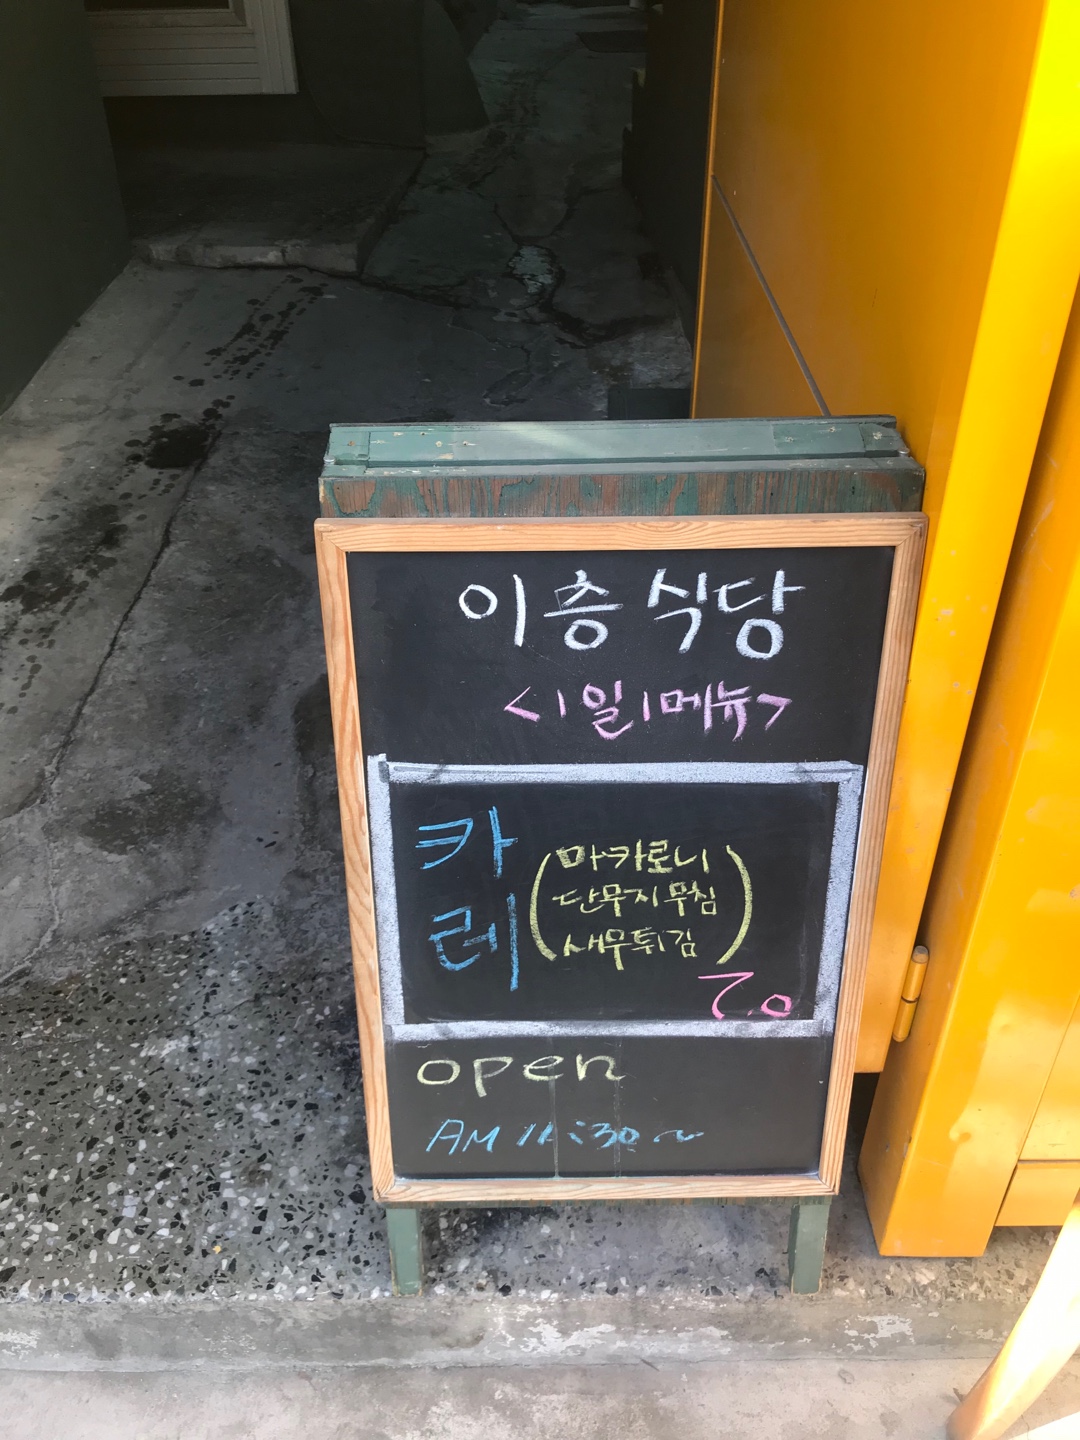 이층식당
<1일1메뉴>
카레
(마카로니
단무지무침
새우튀김)
7.0
open
AM 11:30~